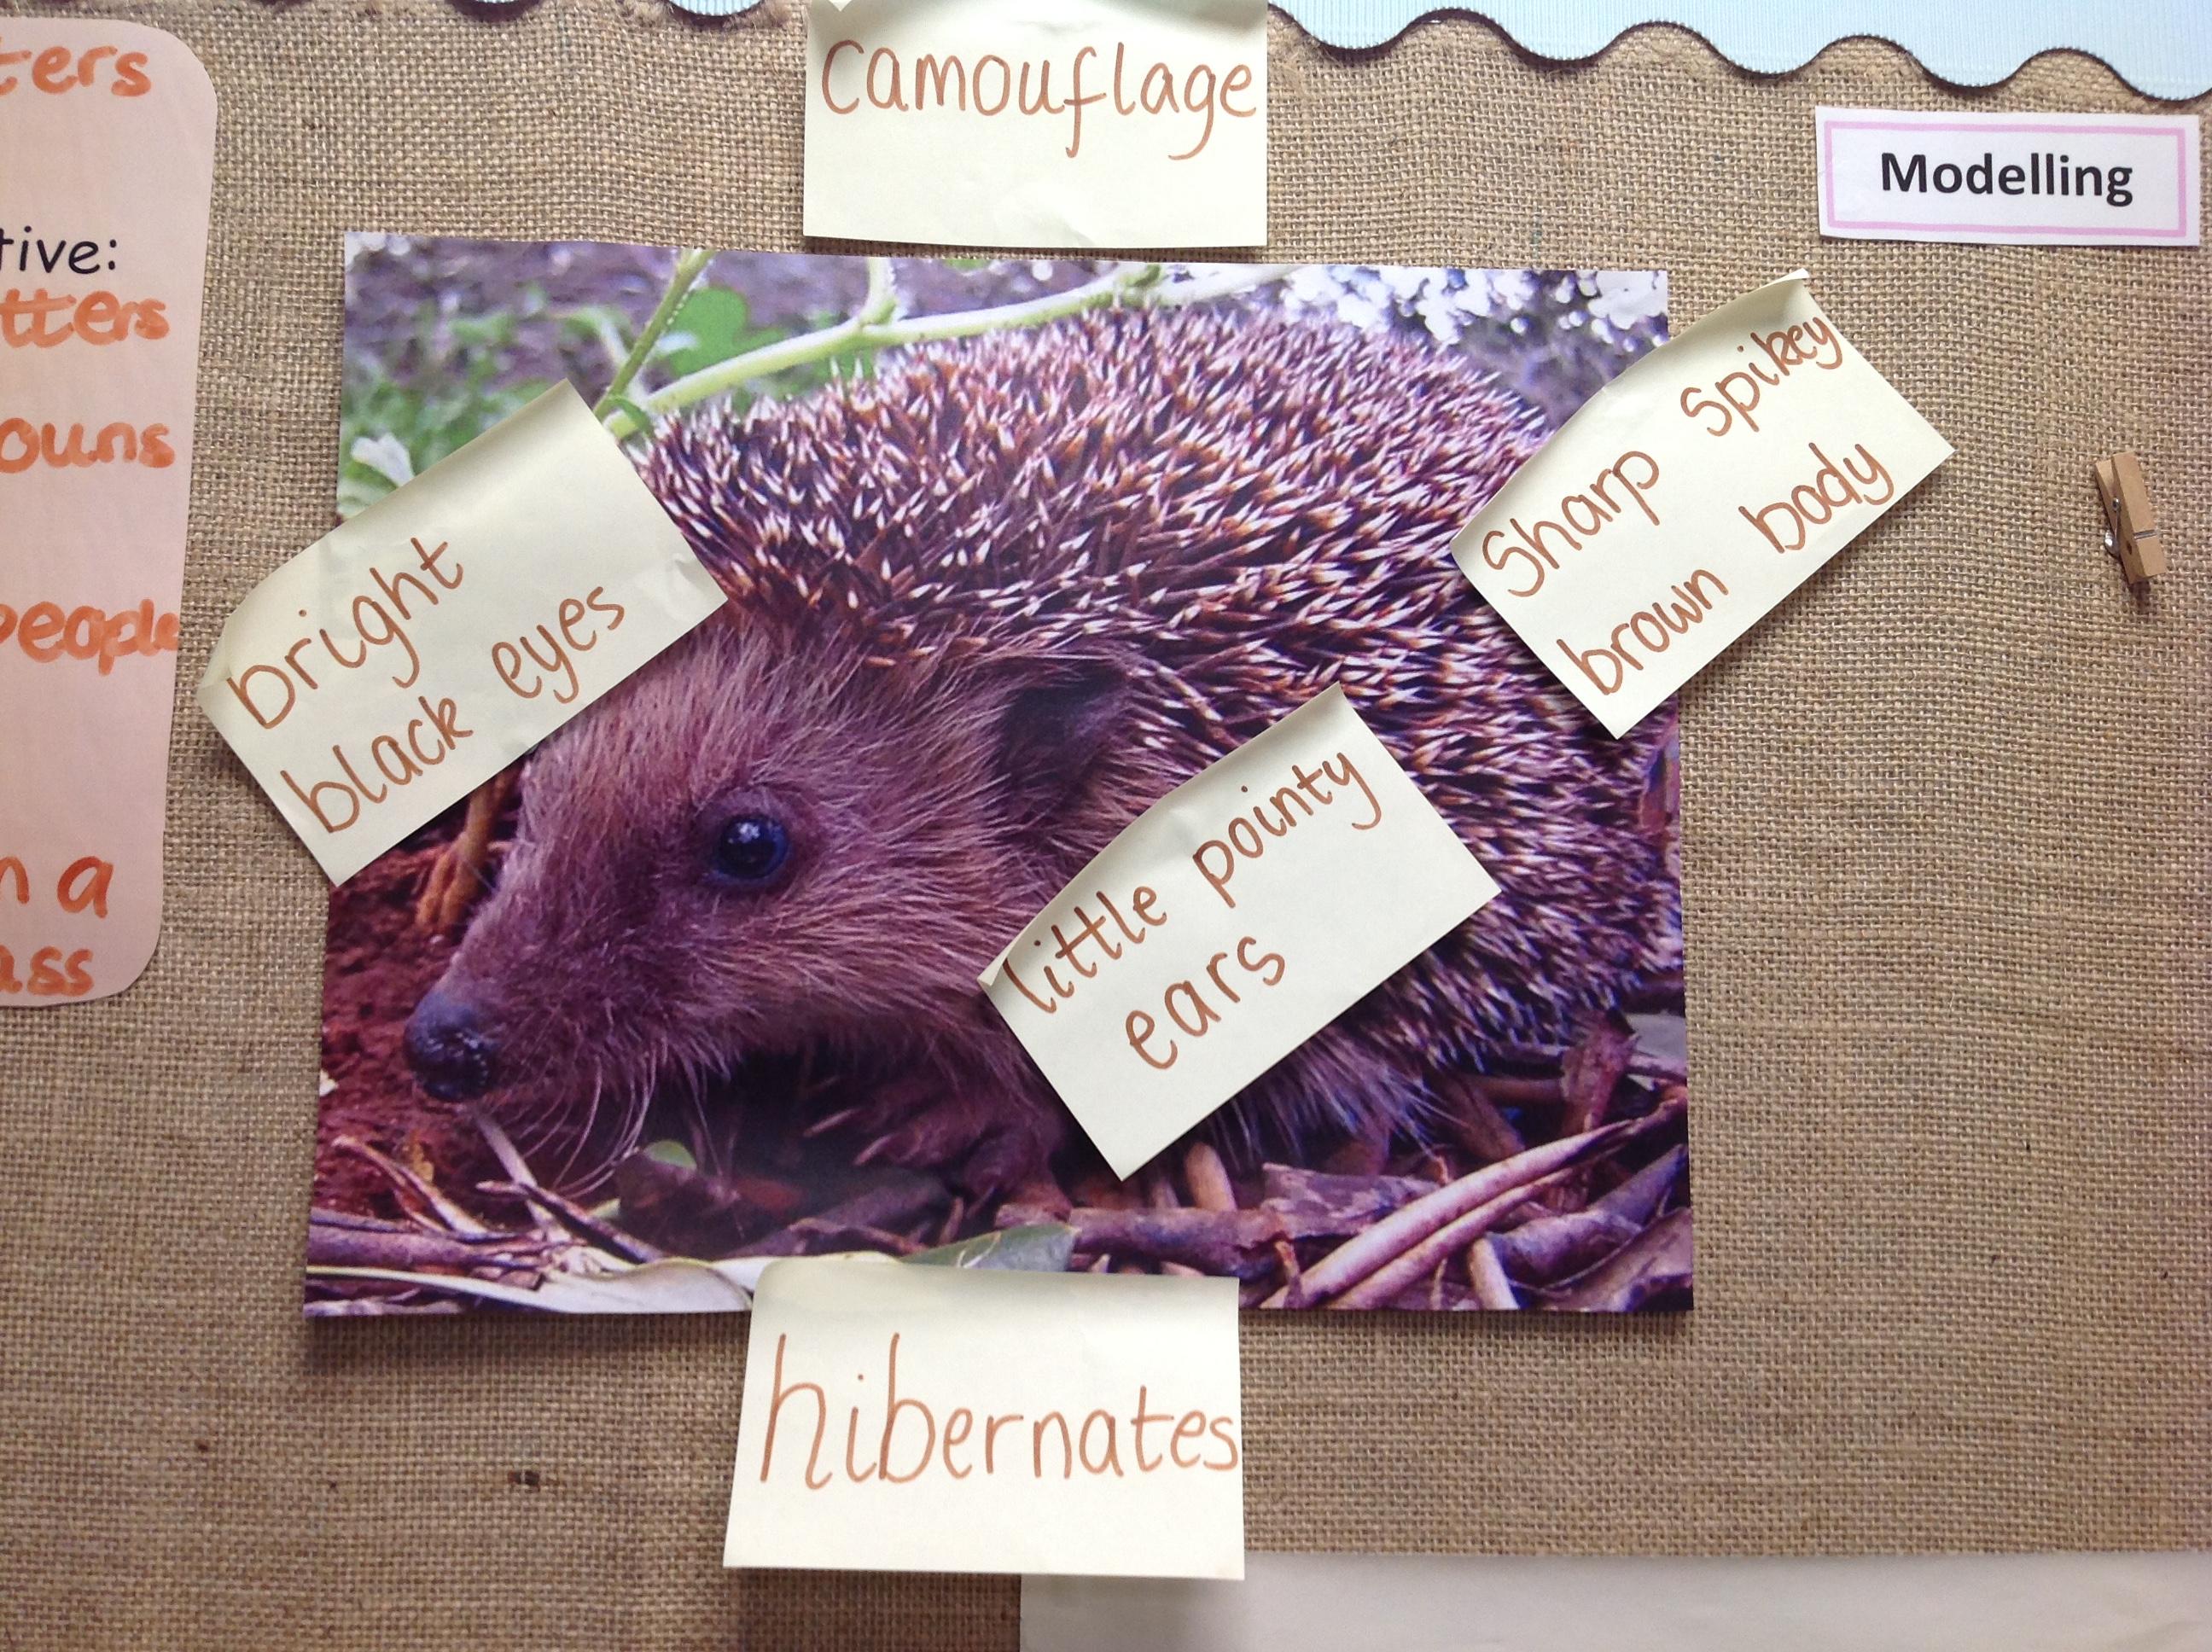 camouflage
Modelling
Sharp Spikey
brown body
bright
black eyes
little pointy
ears
hibernates
ters
tive:
tters
ouns
people
n a
ass